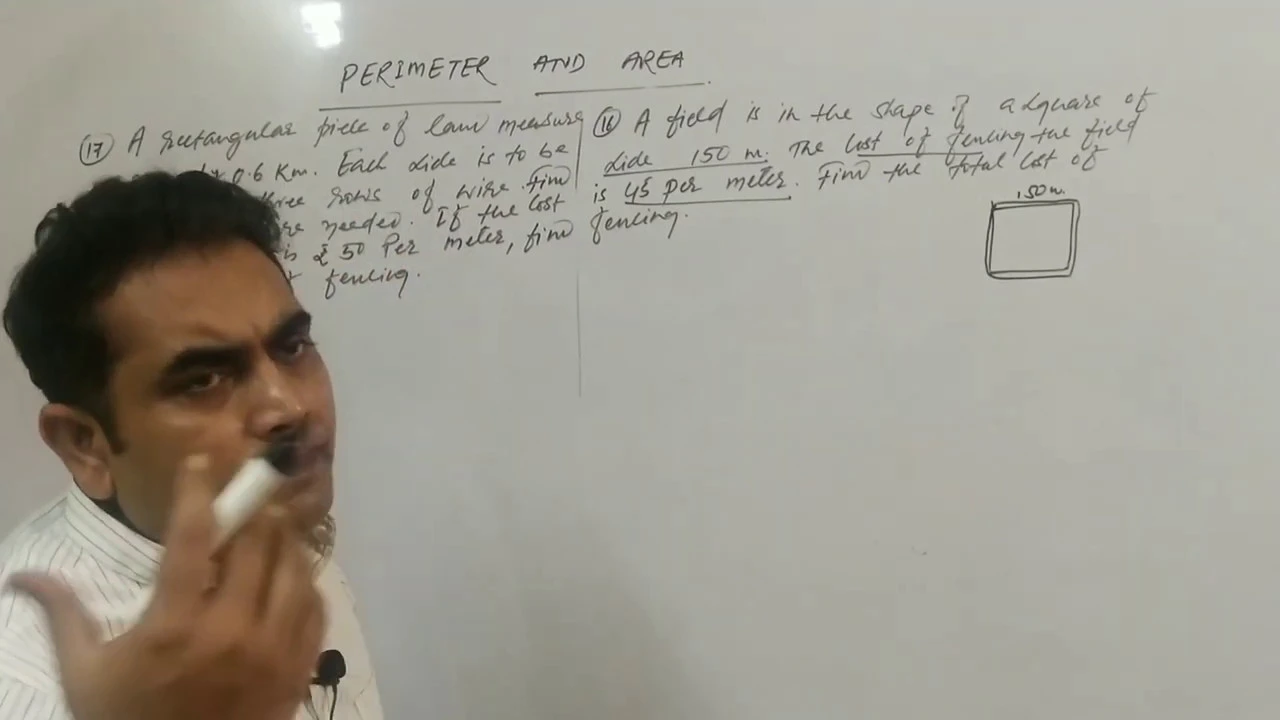 PERIMETER AND AREA
(17) A rectangular piece of land measure
0.6 Km. Each side is to be
three rows of wire. Find
needed. If the cost
is ₹ 50 Per meter, find
fencing.
(16) A field is in the shape of a square of
side 150 m. The cost of fencing the field
is 45 per meter. Find the total cost of
fencing.
150 m.